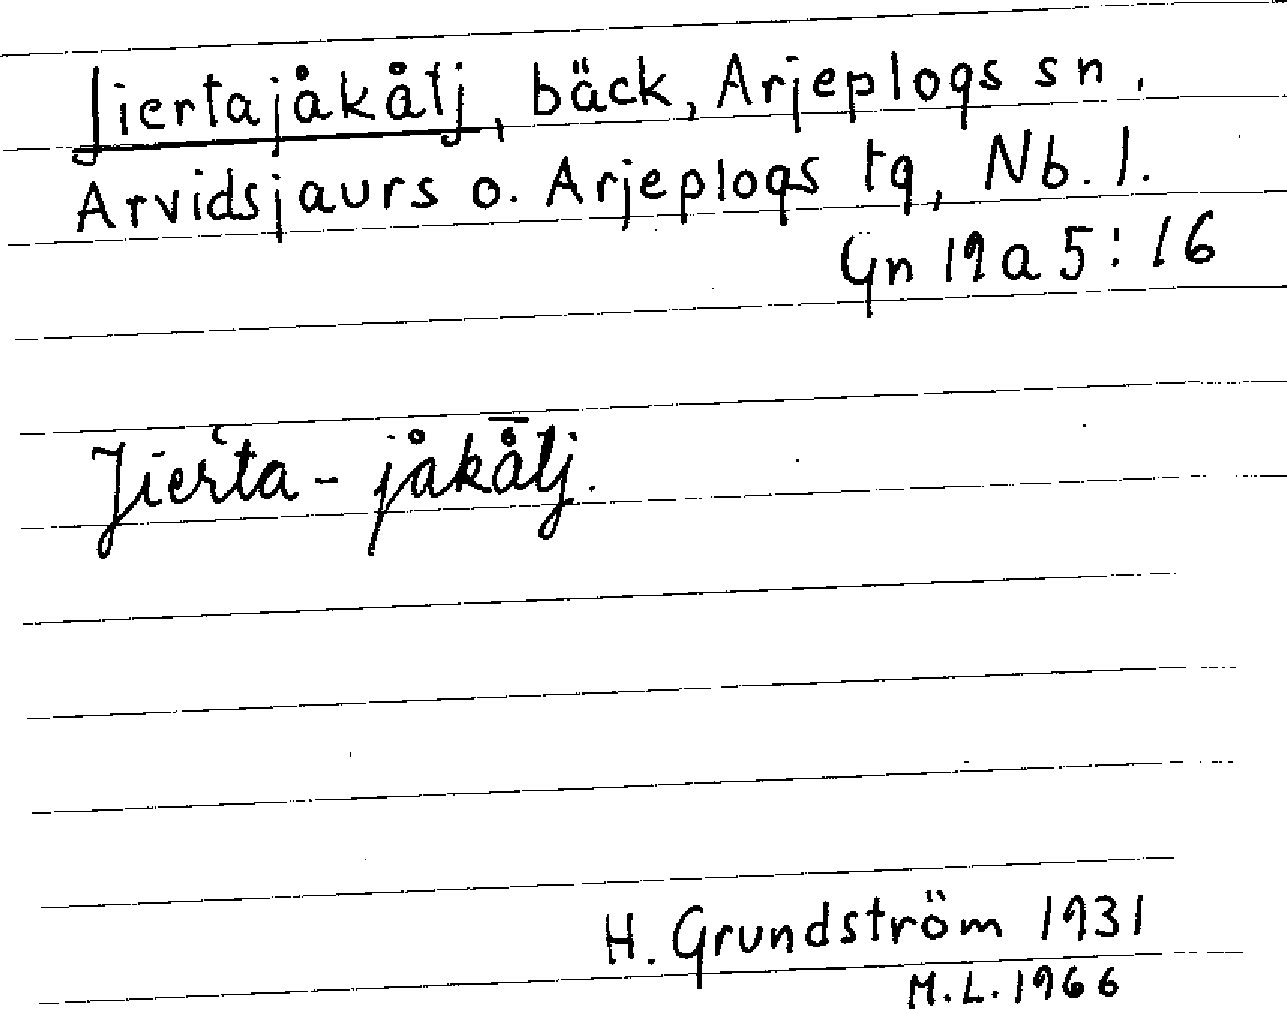 Jiertajåkåtj, bäck, Arjeplogs sn,
Arvidsjaurs o. Arjeplogs tg, Nb. l.
Gn 19a 5:16
Jierʿta-jåkå̄tj.
H. Grundström 1931
M.L. 1966